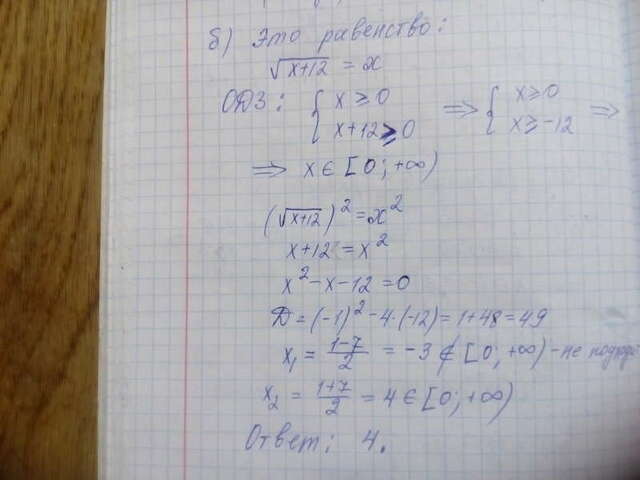 б) Это равенство:
√(x+12) = x
ОДЗ: { x ≥ 0 ⇒ { x ≥ 0 ⇒
x+12 ≥ 0 x ≥ -12
⇒ x ∈ [0; +∞)
(√(x+12))² = x²
x+12 = x²
x² - x - 12 = 0
Д = (-1)² - 4·(-12) = 1+48 = 49
x₁ = (1-7)/2 = -3 ∉ [0; +∞) - не
x₂ = (1+7)/2 = 4 ∈ [0; +∞)
Ответ: 4.